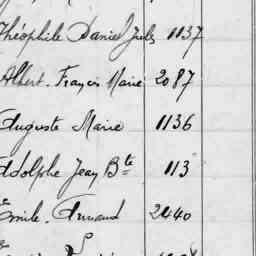 Théophile Daniel Jules 1137
Albert. Francis Marie 2087
Auguste Marie 1136
Adolphe Jean Bte 113
Emile. Armand 2440